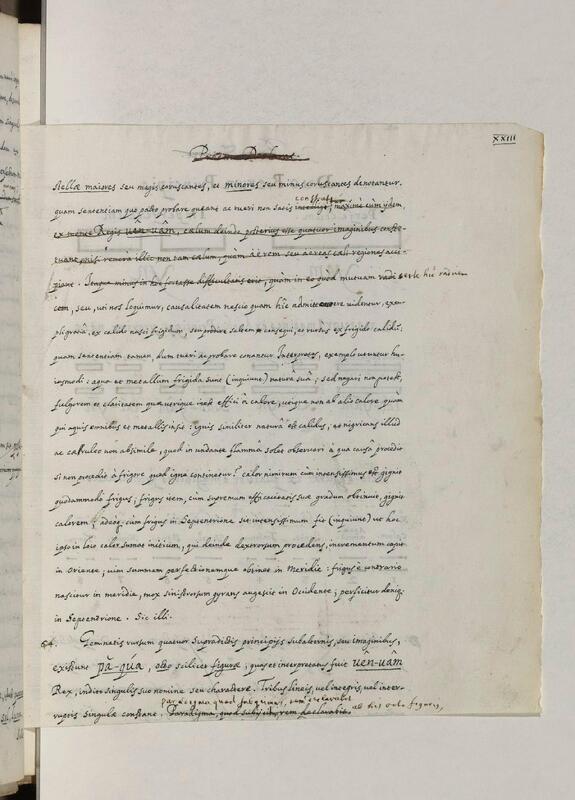 XXIII
stellæ maiores seu magis coruscantes, et minores seu minus coruscantes denotantur.
quam sententiam quo pacto probare queant ac tueri non satis intelligo, maximè cùm ijdem
ex mente Regis uên-uâm, cælum deinde posterius esse quatuor imaginibus
reverà illic non tam cælum, quàm aërem seu aereas cæli regiones acci-
piant. minus in hoc fortasse difficultatis erit, quàm in eo quòd mutuam
cem, seu, uti nos loquimur, causalitatem nescio quam hîc admittere videntur, exem-
pli gratiâ, ex calido nasci frigidum, seu saltem consequi, ac rursus ex frigido calidū.
quam sententiam tamen dum tueri ac probare conantur Interpretes, exemplo utuntur hu-
iusmodi: aqua et metallum frigida sunt (inquiunt) naturâ suâ; sed negari non potest,
fulgorem et claritatem quæ utrique inest effici à calore, utique non ab alio calore quàm
qui aquis omnibus et metallis inest: ignis similiter naturâ est calidus; at nigricans illud
ac cæruleo non absimile, quod in undante flammâ solet observari à qua causâ procedit
si non procedit à frigore quod igne continetur? calor nimirum cùm intensissimus est gignit
quodammodo frigus; frigus item, cùm supremum efficacitatis suæ gradum obtinuit, gignit
calorem; adeoq. cùm frigus in Septentrione sit intensissimum fit (inquiunt) ut hoc
ipso in loco calor sumat initium, qui deinde dextrorsum procedens, incrementum capit
in Oriente, vim summam perfectionemque obtinet in Meridie: frigus è contrario
nascitur in meridie, mox sinistrorsum gyrans augescit in Occidente; perficitur deniq.
in Septentrione. Sic illi.
Geminatis rursum quatuor supradictis principijs subalternis, seu imaginibus,
existunt pa-qua, octo scilicet figuræ; quas et interpretatus fuit uên-uâm
Rex, indito singulis suo nomine seu charactere. Tribus lineis, vel integris, vel inter-
paradigma quod subijcimus, rem declarabit
ruptis singulæ constant. Paradigma, quod subijcitur, rem declarabit. octo figuris,